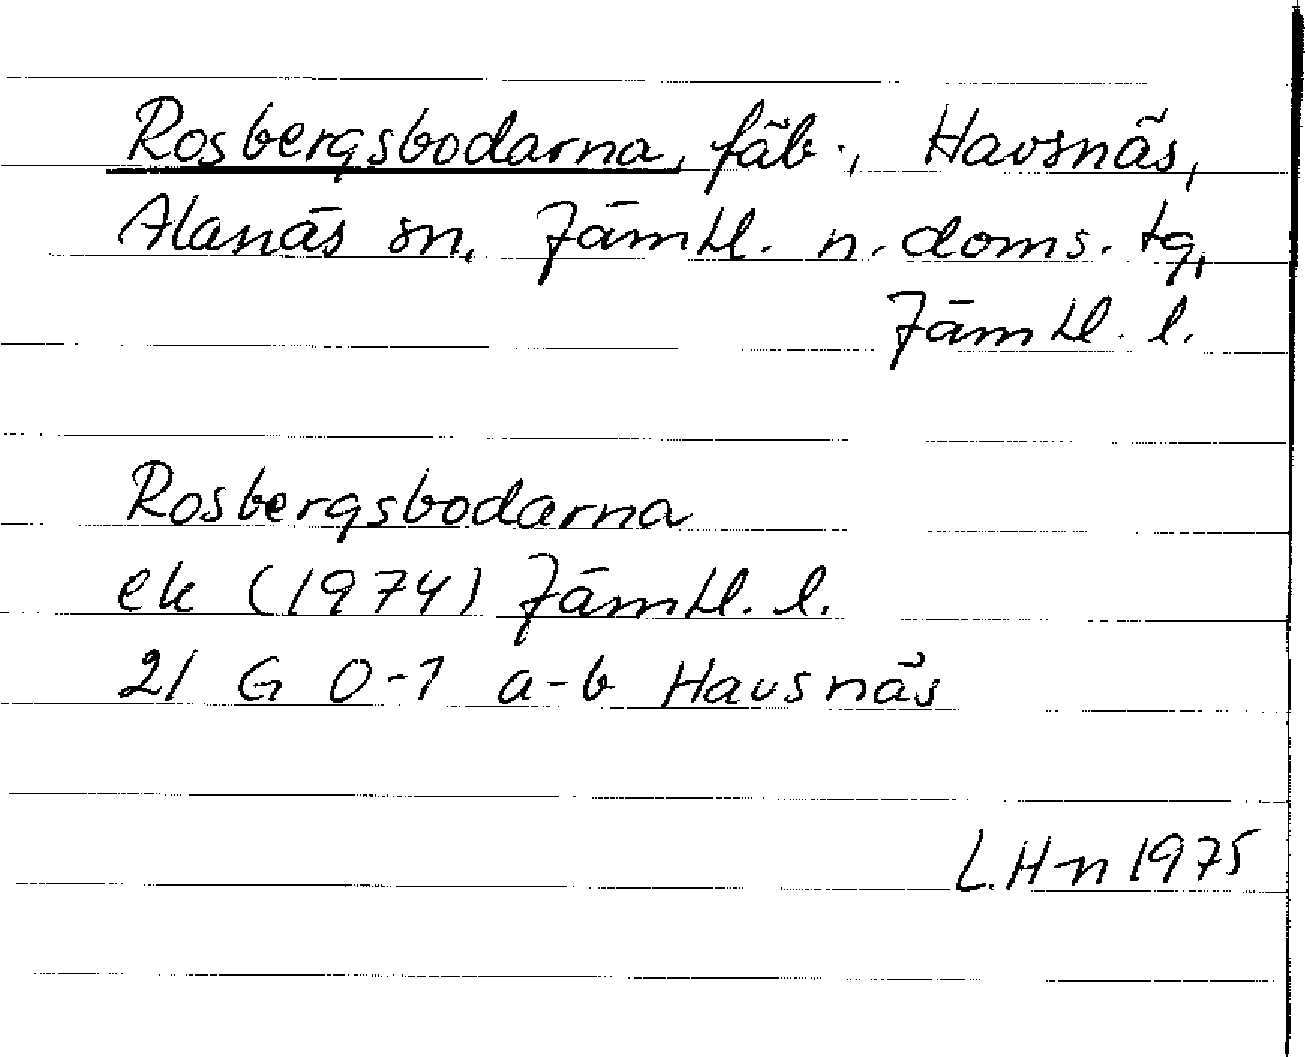 Rosbergsbodarna, fäb., Havsnäs,
Alanäs sn, Jämtl. n. doms. tg,
Jämtl. l.
Rosbergsbodarna
ek (1974) Jämtl. l.
21 G 0-1 a-b Havsnäs
L. H-n 1975